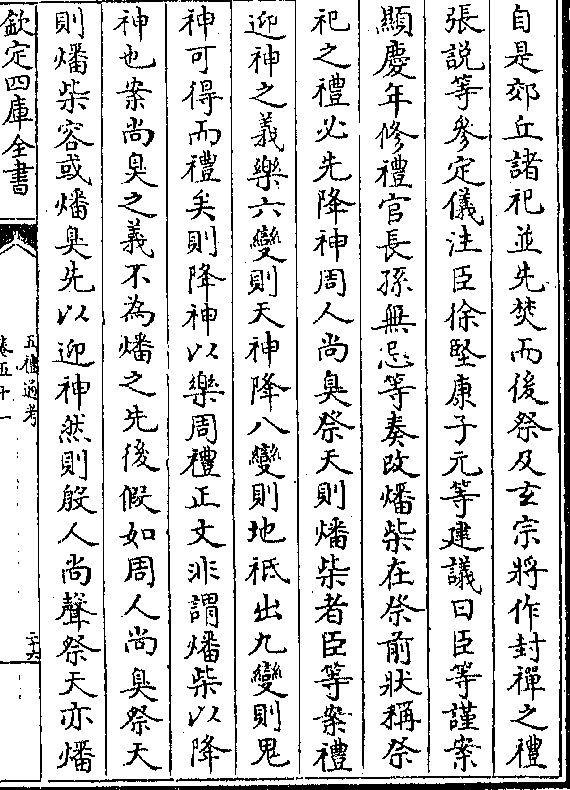 自是郊丘諸祀並先焚而後祭及玄宗將作封禪之禮
張説等參定儀注臣徐堅康子元等建議曰臣等謹案
顯慶年修禮官長孫無忌等奏改燔柴在祭前狀稱祭
祀之禮必先降神周人尚臭祭天則燔柴者臣等案禮
迎神之義樂六變則天神降八變則地祗出九變則鬼
神可得而禮矣則降神以樂周禮正文非謂燔柴以降
神也案尚臭之義不為燔之先後假如周人尚臭祭天
則燔柴容或燔臭先以迎神然則殷人尚聲祭天亦燔
欽定四庫全書
五禮通考
卷五十一
二十六